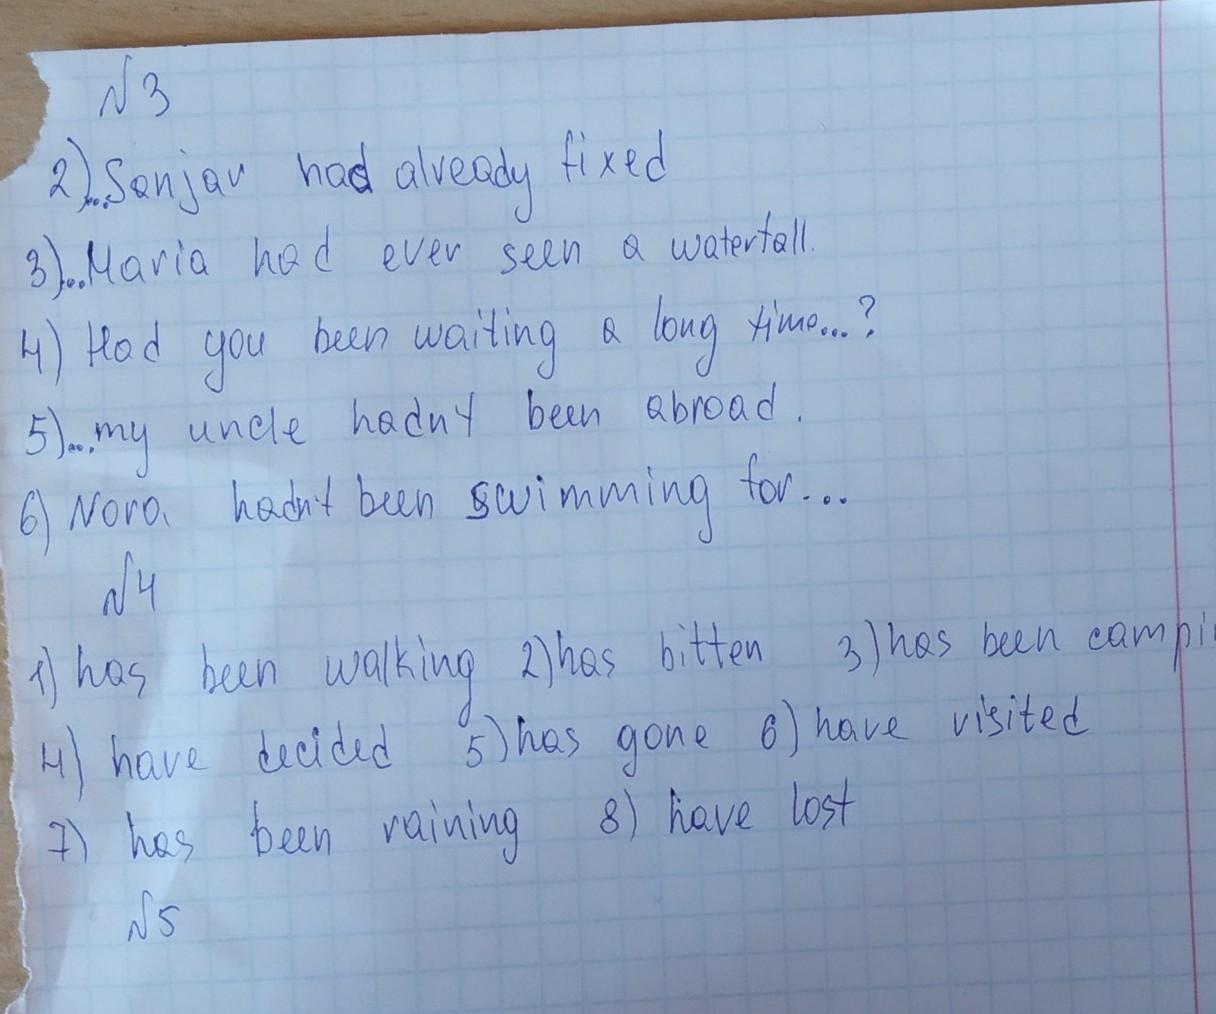 №3
2)...Sanjay had already fixed
3)...Maria had ever seen a waterfall.
4) Had you been waiting a long time...?
5)...my uncle hadn't been abroad.
6) Nora hadn't been swimming for...
№4
1) has been walking 2) has bitten 3) has been campi
4) have decided 5) has gone 6) have visited
7) has been raining 8) have lost
№5